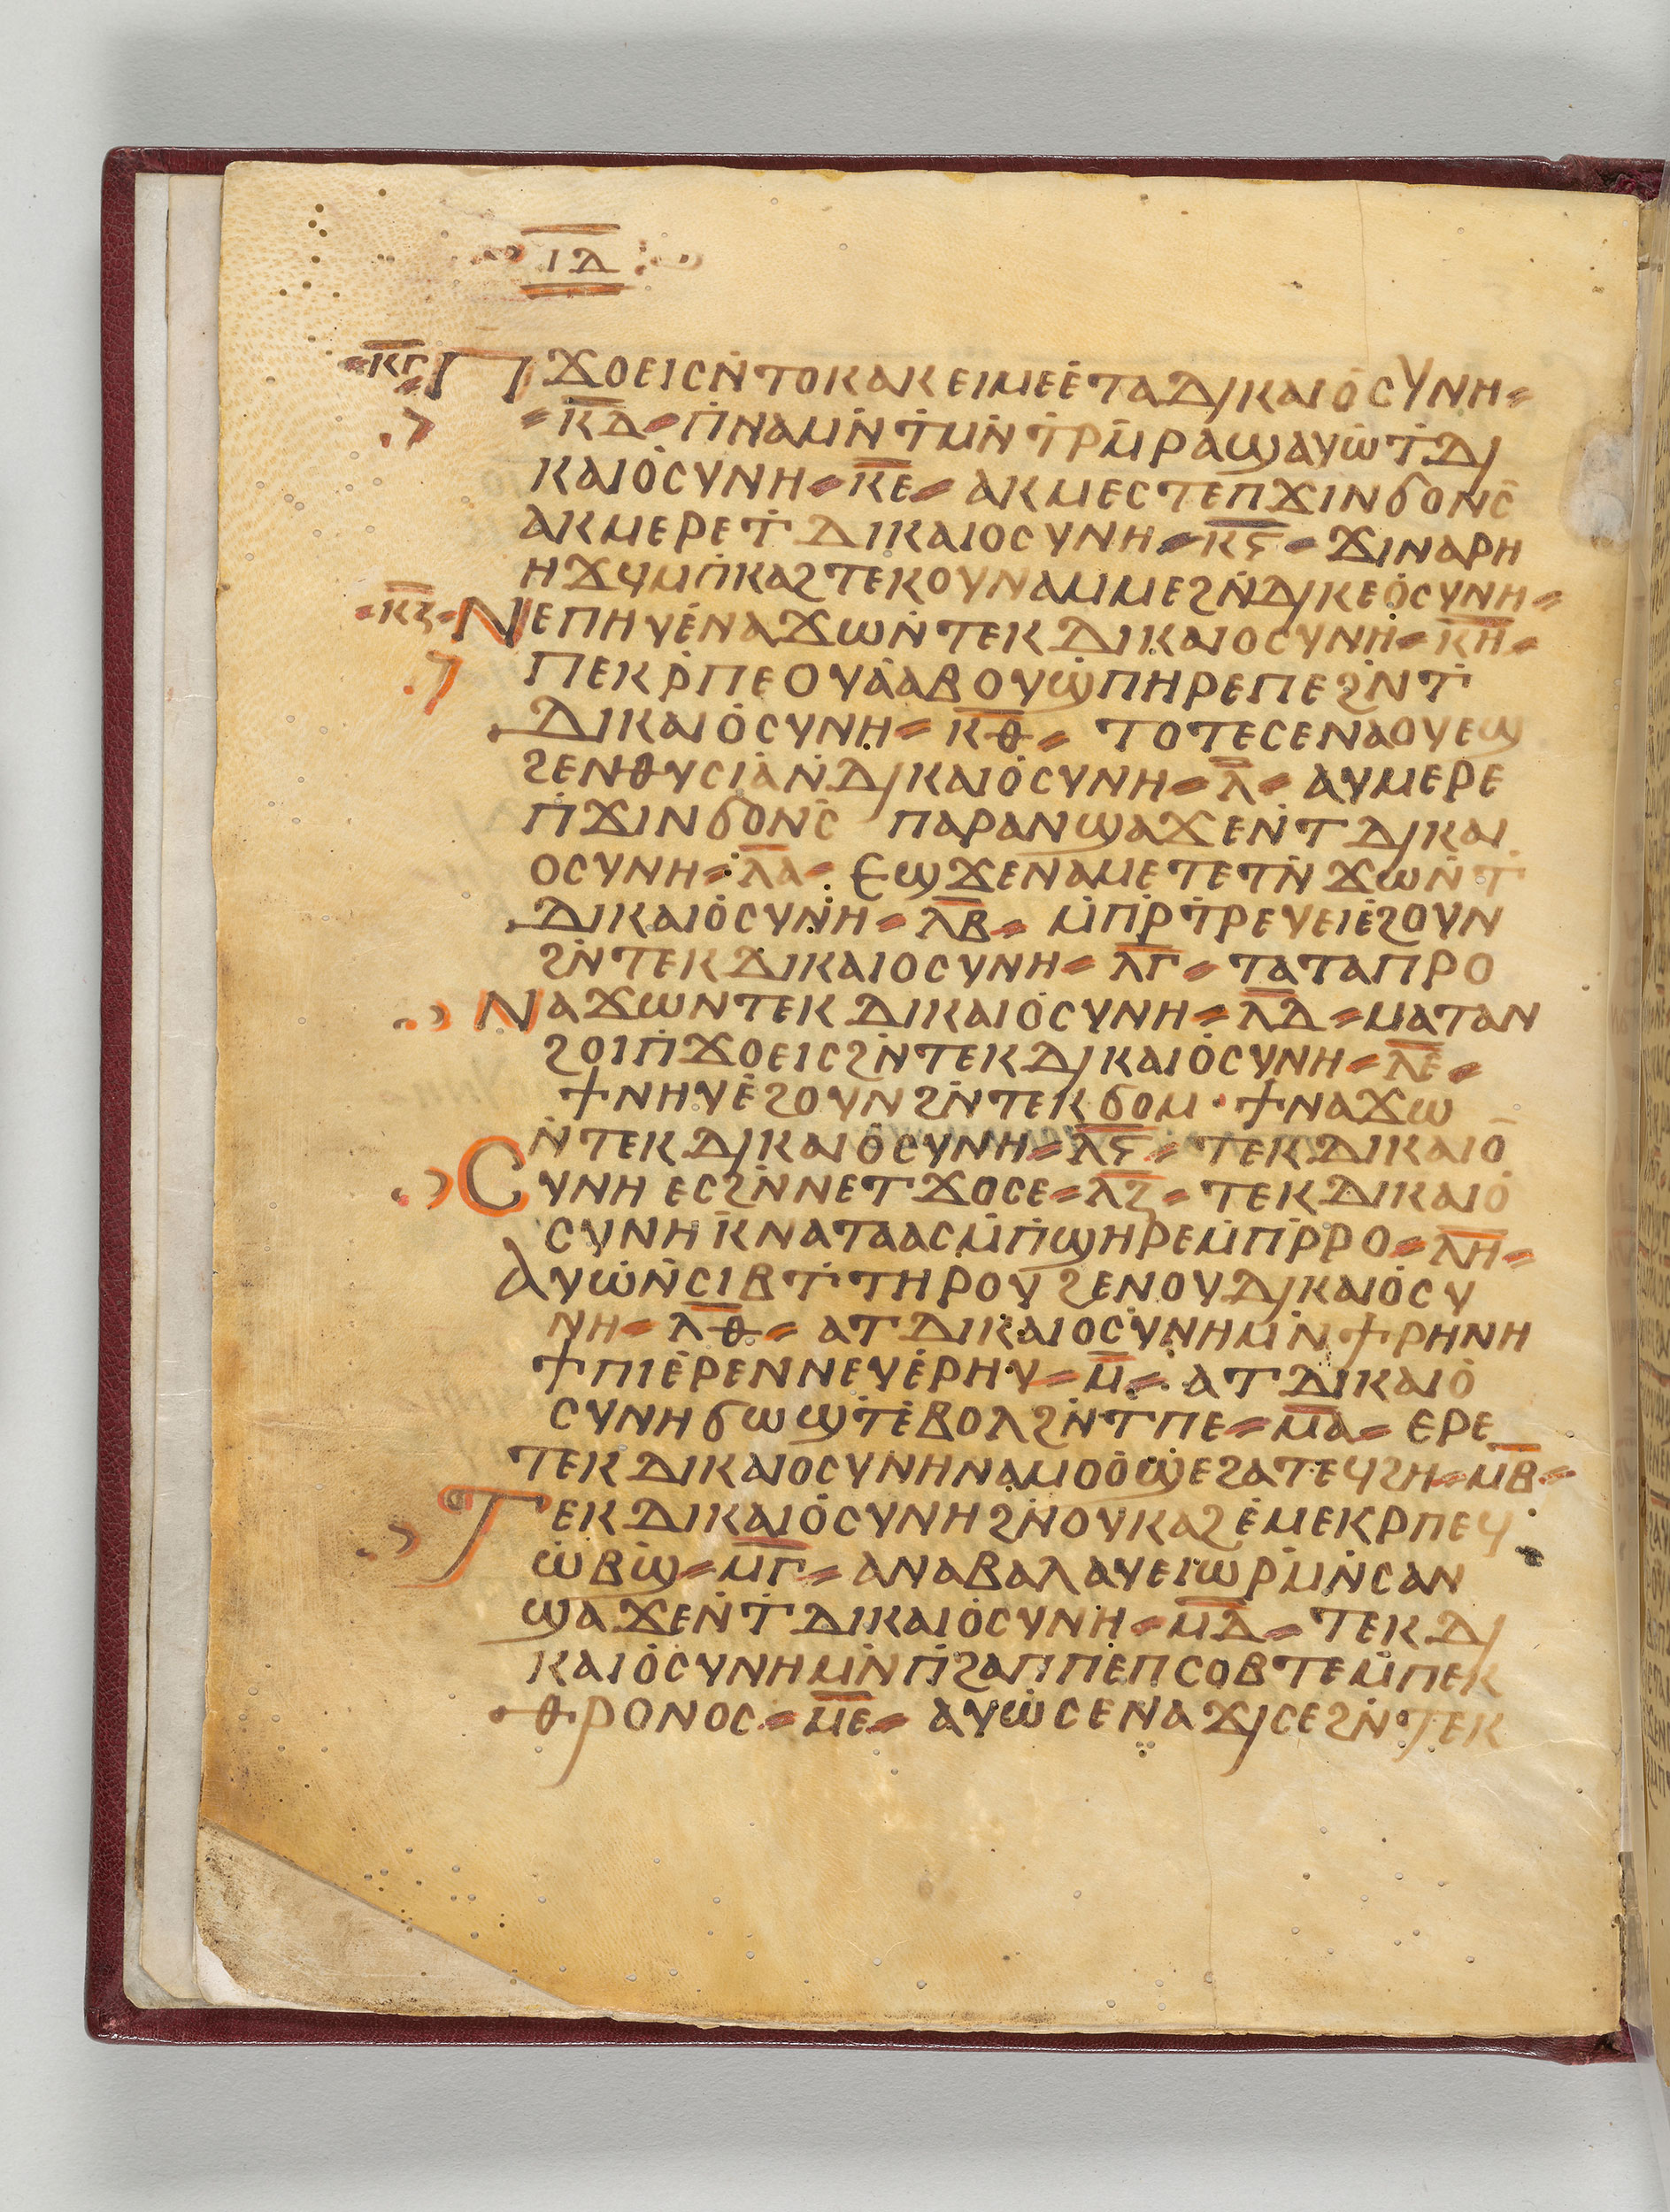 ⲓⲇ
ⲕⲅ ⲡϫⲟⲉⲓⲥⲛ̇ⲧⲟⲕⲁⲕⲉⲓⲙⲉⲉ̇ⲧⲁⲇⲓⲕⲁⲓⲟ̇ⲥⲩⲛⲏ=
=ⲕ̅ⲇ̅=ⲡ̇ⲛⲁⲙⲛ̇ⲧ̇ⲙⲛ̇ⲧ̇ⲣⲙ̇ⲣⲁϣⲁⲩⲱ̇ⲧ̇ⲇⲓ
ⲕⲁⲓⲟ̇ⲥⲩⲛⲏ=ⲕ̅ⲉ̅=ⲁⲕⲙⲉⲥⲧⲉⲡϫⲓⲛϭⲟⲛⲥ̄
ⲁⲕⲙⲉⲣⲉⲧ̇ⲇⲓⲕⲁⲓⲟⲥⲩⲛⲏ=ⲕ̅ⲋ̅=ϫⲓⲛⲁⲣⲏ
ⲏϫϥⲙ̇ⲡⲕⲁϩⲧⲉⲕⲟⲩⲛⲁⲙⲙⲉϩⲛ̇ⲇⲓⲕⲉⲟ̇ⲥⲩⲛⲏ=
=ⲕ̅ⲍ̅=ⲛⲉⲡⲏⲩⲉ̇ⲛⲁϫⲱⲛ̇ⲧⲉⲕⲇⲓⲕⲁⲓⲟⲥⲩⲛⲏ=ⲕ̅ⲏ̅=
ⲡⲉⲕⲣ̇ⲡⲉⲟⲩⲁ̇ⲁⲃⲟⲩϣ̇ⲡⲏⲣⲉⲡⲉϩⲛ̇ⲧ̇
ⲇⲓⲕⲁⲓⲟ̇ⲥⲩⲛⲏ=ⲕ̅ⲑ̅=ⲧⲟⲧⲉⲥⲉⲛⲁⲟⲩⲉϣ
ϩⲉⲛⲑⲩⲥⲓⲁ̇ⲛ̇ⲇⲓⲕⲁⲓⲟ̇ⲥⲩⲛⲏ=ⲗ̅=ⲁⲩⲙⲉⲣⲉ
ⲡ̇ϫⲓⲛϭⲟⲛⲥ̄ ⲡⲁⲣⲁⲛϣⲁϫⲉⲛ̇ⲧⲇⲓⲕⲁⲓ
ⲟⲥⲩⲛⲏ=ⲗ̅ⲁ̅=ⲉϣϫⲉⲛⲁⲙⲉⲧⲉⲧⲛ̇ϫⲱⲛ̇ⲧ̇
ⲇⲓⲕⲁⲓⲟ̇ⲥⲩⲛⲏ=ⲗ̅ⲃ̅=ⲙ̇ⲡⲣ̇ⲧ̇ⲣⲉⲩⲉⲓⲉ̇ϩⲟⲩⲛ
ϩⲛ̇ⲧⲉⲕⲇⲓⲕⲁⲓⲟⲥⲩⲛⲏ=ⲗ̅ⲅ̅=ⲧⲁⲧⲁⲡⲣⲟ
ⲛⲁϫⲱⲛⲧⲉⲕⲇⲓⲕⲁⲓⲟ̇ⲥⲩⲛⲏ=ⲗ̅ⲇ̅=ⲙⲁⲧⲁⲛ
ϩⲟⲓⲡ̇ϫⲟⲉⲓⲥϩⲛ̇ⲧⲉⲕⲇⲓⲕⲁⲓⲟ̇ⲥⲩⲛⲏ=ⲗ̅ⲉ̅=
ϯⲛⲏⲩⲉ̇ϩⲟⲩⲛϩⲛ̇ⲧⲉⲕϭⲟⲙ·ϯⲛⲁϫⲱ
ⲛ̇ⲧⲉⲕⲇⲓⲕⲁⲓⲟ̇ⲥⲩⲛⲏ=ⲗ̅ⲋ̅=ⲧⲉⲕⲇⲓⲕⲁⲓⲟ̄
ⲥⲩⲛⲏⲉⲥϩⲛ̇ⲛⲉⲧϫⲟⲥⲉ=ⲗ̅ⲍ̅=ⲧⲉⲕⲇⲓⲕⲁⲓⲟ̇
ⲥⲩⲛⲏⲕ̇ⲛⲁⲧⲁⲁⲥⲙ̇ⲡ̇ϣⲏⲣⲉⲙ̇ⲡⲣ̇ⲣⲟ=ⲗ̅ⲏ̅=
ⲁⲩⲱⲛ̇ⲥⲓⲃⲧ̇ⲧⲏⲣⲟⲩϩⲉⲛⲟⲩⲇⲓⲕⲁⲓⲟ̇ⲥⲩ
ⲛⲏ=ⲗ̅ⲑ̅=ⲁⲧⲇⲓⲕⲁⲓⲟⲥⲩⲛⲏⲙⲛ̇ϯⲣⲏⲛⲏ
ϯⲡⲓⲉ̇ⲣⲉⲛⲛⲉⲩⲉ̇ⲣⲏⲩ=ⲙ̅=ⲁⲧⲇⲓⲕⲁⲓⲟ̇
ⲥⲩⲛⲏϭⲱϣⲧ̇ⲉ̇ⲃⲟⲗϩⲛ̇ⲧⲡⲉ=ⲙ̅ⲁ̅=ⲉⲣⲉ
ⲧⲉⲕⲇⲓⲕⲁⲓⲟⲥⲩⲛⲏⲛⲁⲙⲟⲟ̇ϣⲉϩⲁⲧⲉϥϩⲏ=ⲙ̅ⲃ̅=
ⲧⲉⲕⲇⲓⲕⲁⲓⲟ̇ⲥⲩⲛⲏϩⲛ̇ⲟⲩⲕⲁϩⲉ̇ⲙⲉⲕⲣⲡⲉϥ
ⲱ̇ⲃϣ̇=ⲙ̅ⲅ̅=ⲁⲛⲁⲃⲁⲗⲁⲩⲉⲓⲱⲣⲙ̇ⲛ̇ⲥⲁⲛ
ϣⲁϫⲉⲛ̇ⲧ̇ⲇⲓⲕⲁⲓⲟ̇ⲥⲩⲛⲏ=ⲙ̅ⲇ̅=ⲧⲉⲕⲇⲓ
ⲕⲁⲓⲟ̇ⲥⲩⲛⲏⲙⲛ̇ⲡ̇ϩⲁⲡⲡⲉⲡⲥⲟⲃⲧⲉⲙ̇ⲡⲉⲕ
ⲑⲣⲟⲛⲟⲥ=ⲙ̅ⲉ̅=ⲁⲩⲱ̇ⲥⲉⲛⲁϫⲓⲥⲉϩⲛ̇ⲧⲉⲕ